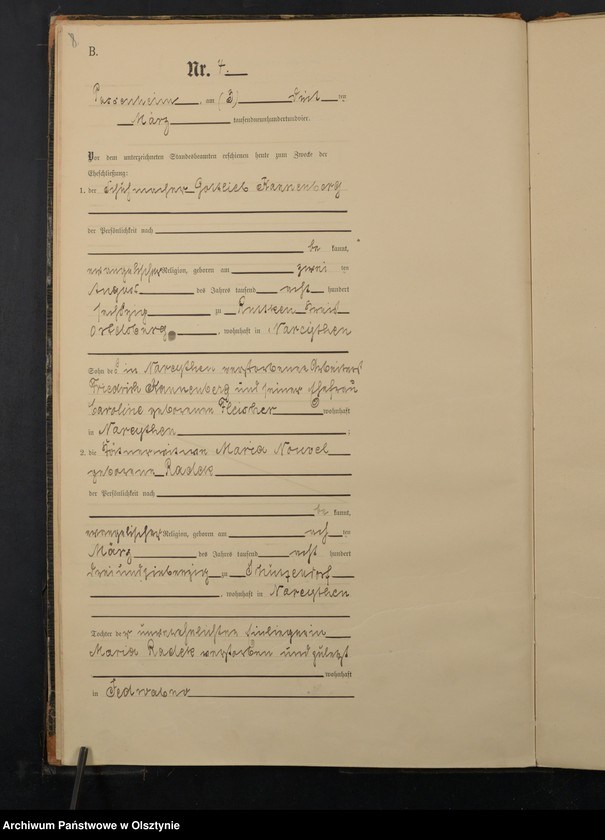 8
B.
Nr. 4.
Passenheim, am (3) ten
März tausendneunhundertundvier.
Vor dem unterzeichneten Standesbeamten erschienen heute zum Zwecke der
Eheschließung:
1. der Schuhmacher Gottlieb Kannenberg
der Persönlichkeit nach
be kannt,
evangelischer Religion, geboren am zwei ten
August des Jahres tausend acht hundert
sechszig zu Kreis
Ortelsburg, wohnhaft in Narcythen
Sohn des in Narcythen verstorbenen Arbeiters
Friedrich Kannenberg und seiner Ehefrau
Caroline geborenen Fleischer wohnhaft
in Narcythen
2. die Maria
geborene Radek
der Persönlichkeit nach
be kannt,
evangelischer Religion, geboren am ach ten
März des Jahres tausend acht hundert
dreiundsiebenzig zu
, wohnhaft in Narcythen
Tochter der unverehelichten
Maria Radek verstorben und zuletzt
wohnhaft
in Jedwabno
Archiwum Państwowe w Olsztynie